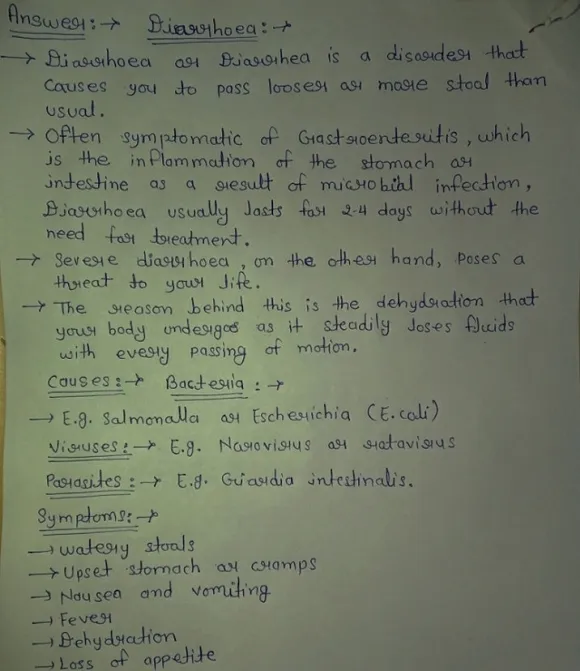 Answer:→ Diarrhoea:→
→ Diarrhoea or Diarrhea is a disorder that
causes you to pass looser or more stool than
usual.
→ Often symptomatic of Gastroenteritis, which
is the inflammation of the stomach or
intestine as a result of microbial infection,
Diarrhoea usually lasts for 2-4 days without the
need for treatment.
→ Severe diarrhoea, on the other hand, poses a
threat to your life.
→ The reason behind this is the dehydration that
your body undergoes as it steadily loses fluids
with every passing of motion.
Causes:→ Bacteria:→
→ E.g. Salmonalla or Escherichia (E.coli)
Viruses:→ E.g. Norovirus or rotavirus
Parasites:→ E.g. Guardia intestinalis.
Symptoms:→
→ watery stools
→ Upset stomach or cramps
→ Nausea and vomiting
→ Fever
→ Dehydration
→ Loss of appetite